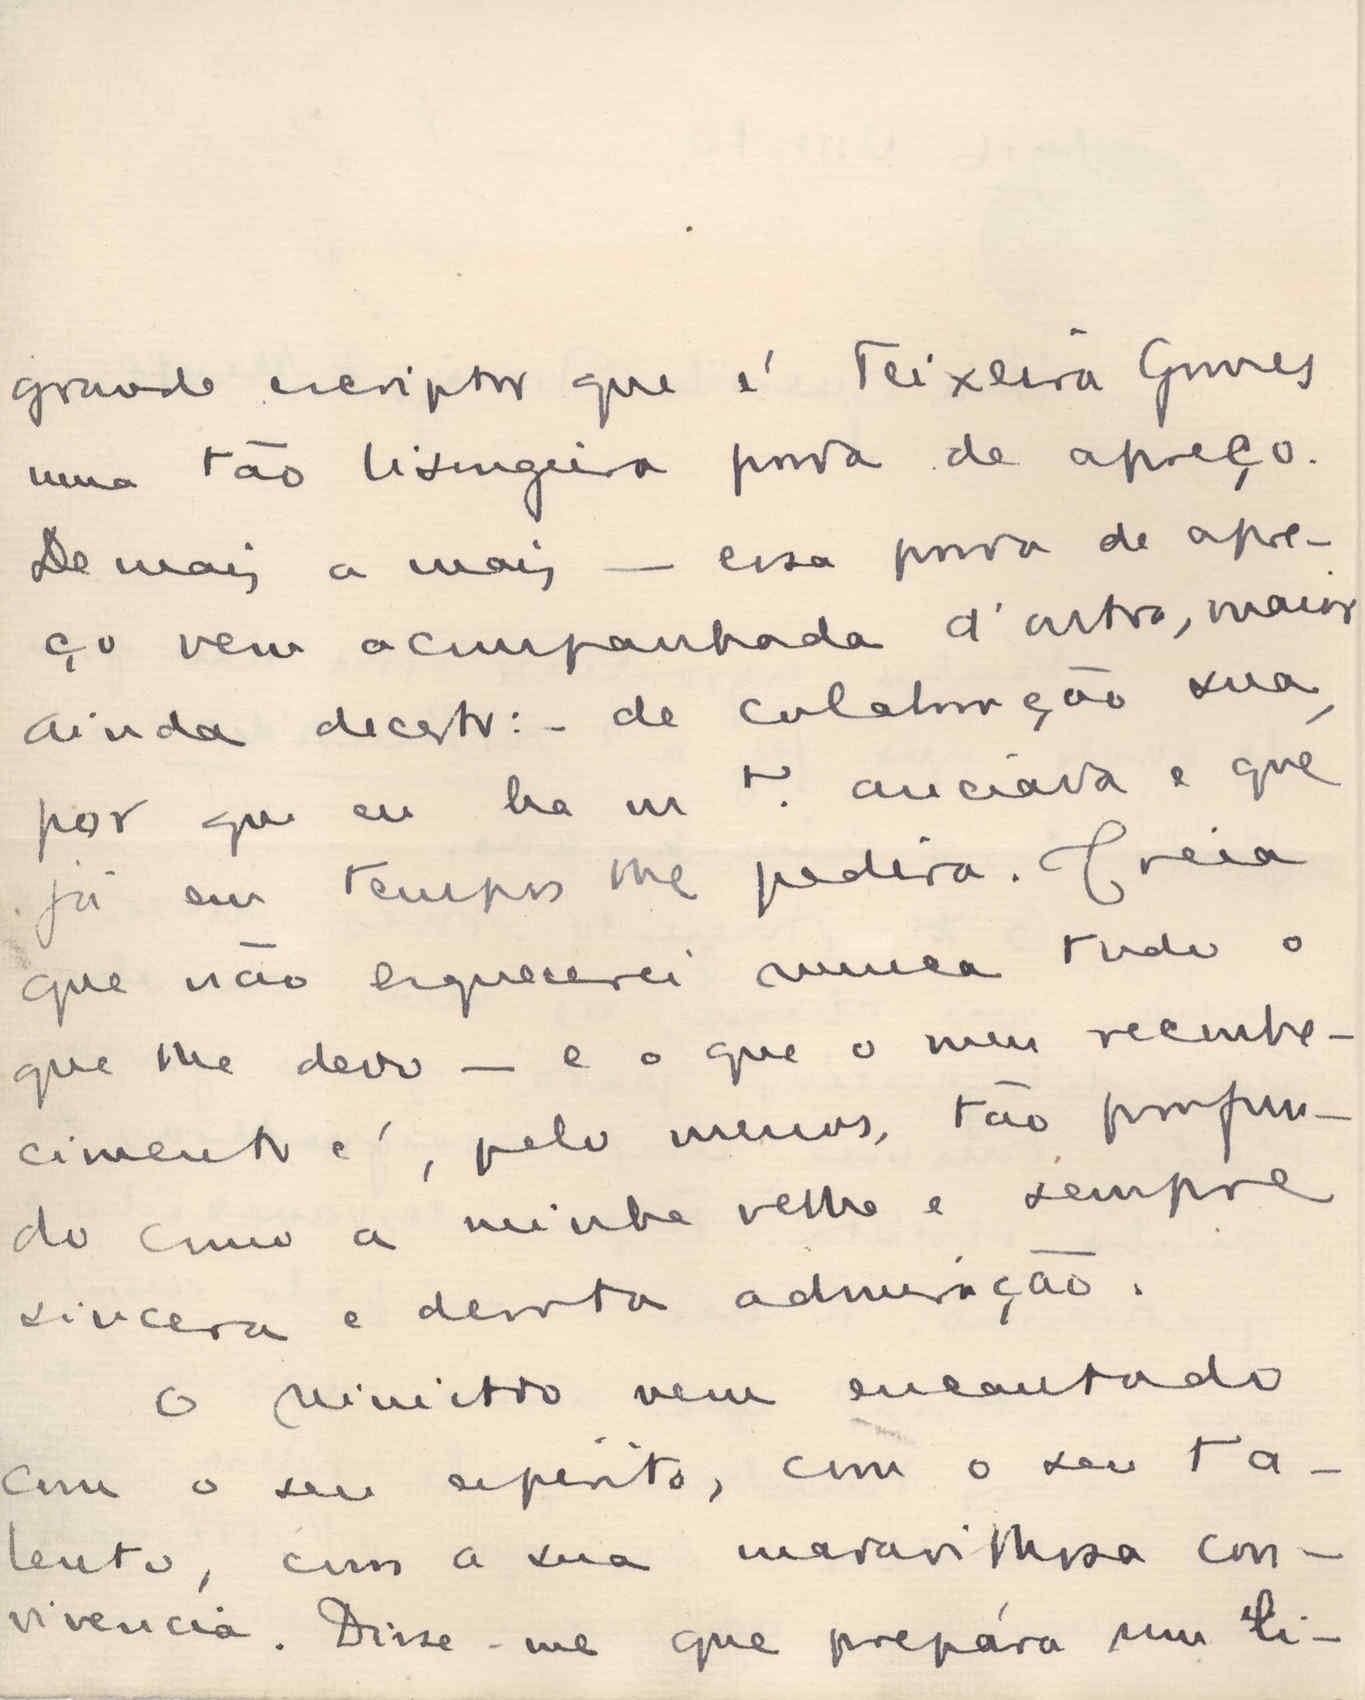 grande escriptor que é Teixeira Gomes
uma tão lisongeira prova de apreço.
De mais a mais — essa prova de apre-
ço vem acompanhada d'outra, maior
ainda decerto: - de colaboração sua,
por que eu ha mto. anciava e que
já em tempos lhe pedira. Creia
que não esquecerei nunca tudo o
que lhe devo — e o que o meu reconhe-
cimento é, pelo menos, tão profun-
do como a minha velha e sempre
sincera e devota admiração.
O Ministro vem encantado
com o seu espirito, com o seu ta-
lento, com a sua maravilhosa con-
vivencia. Disse-me que prepára um li-